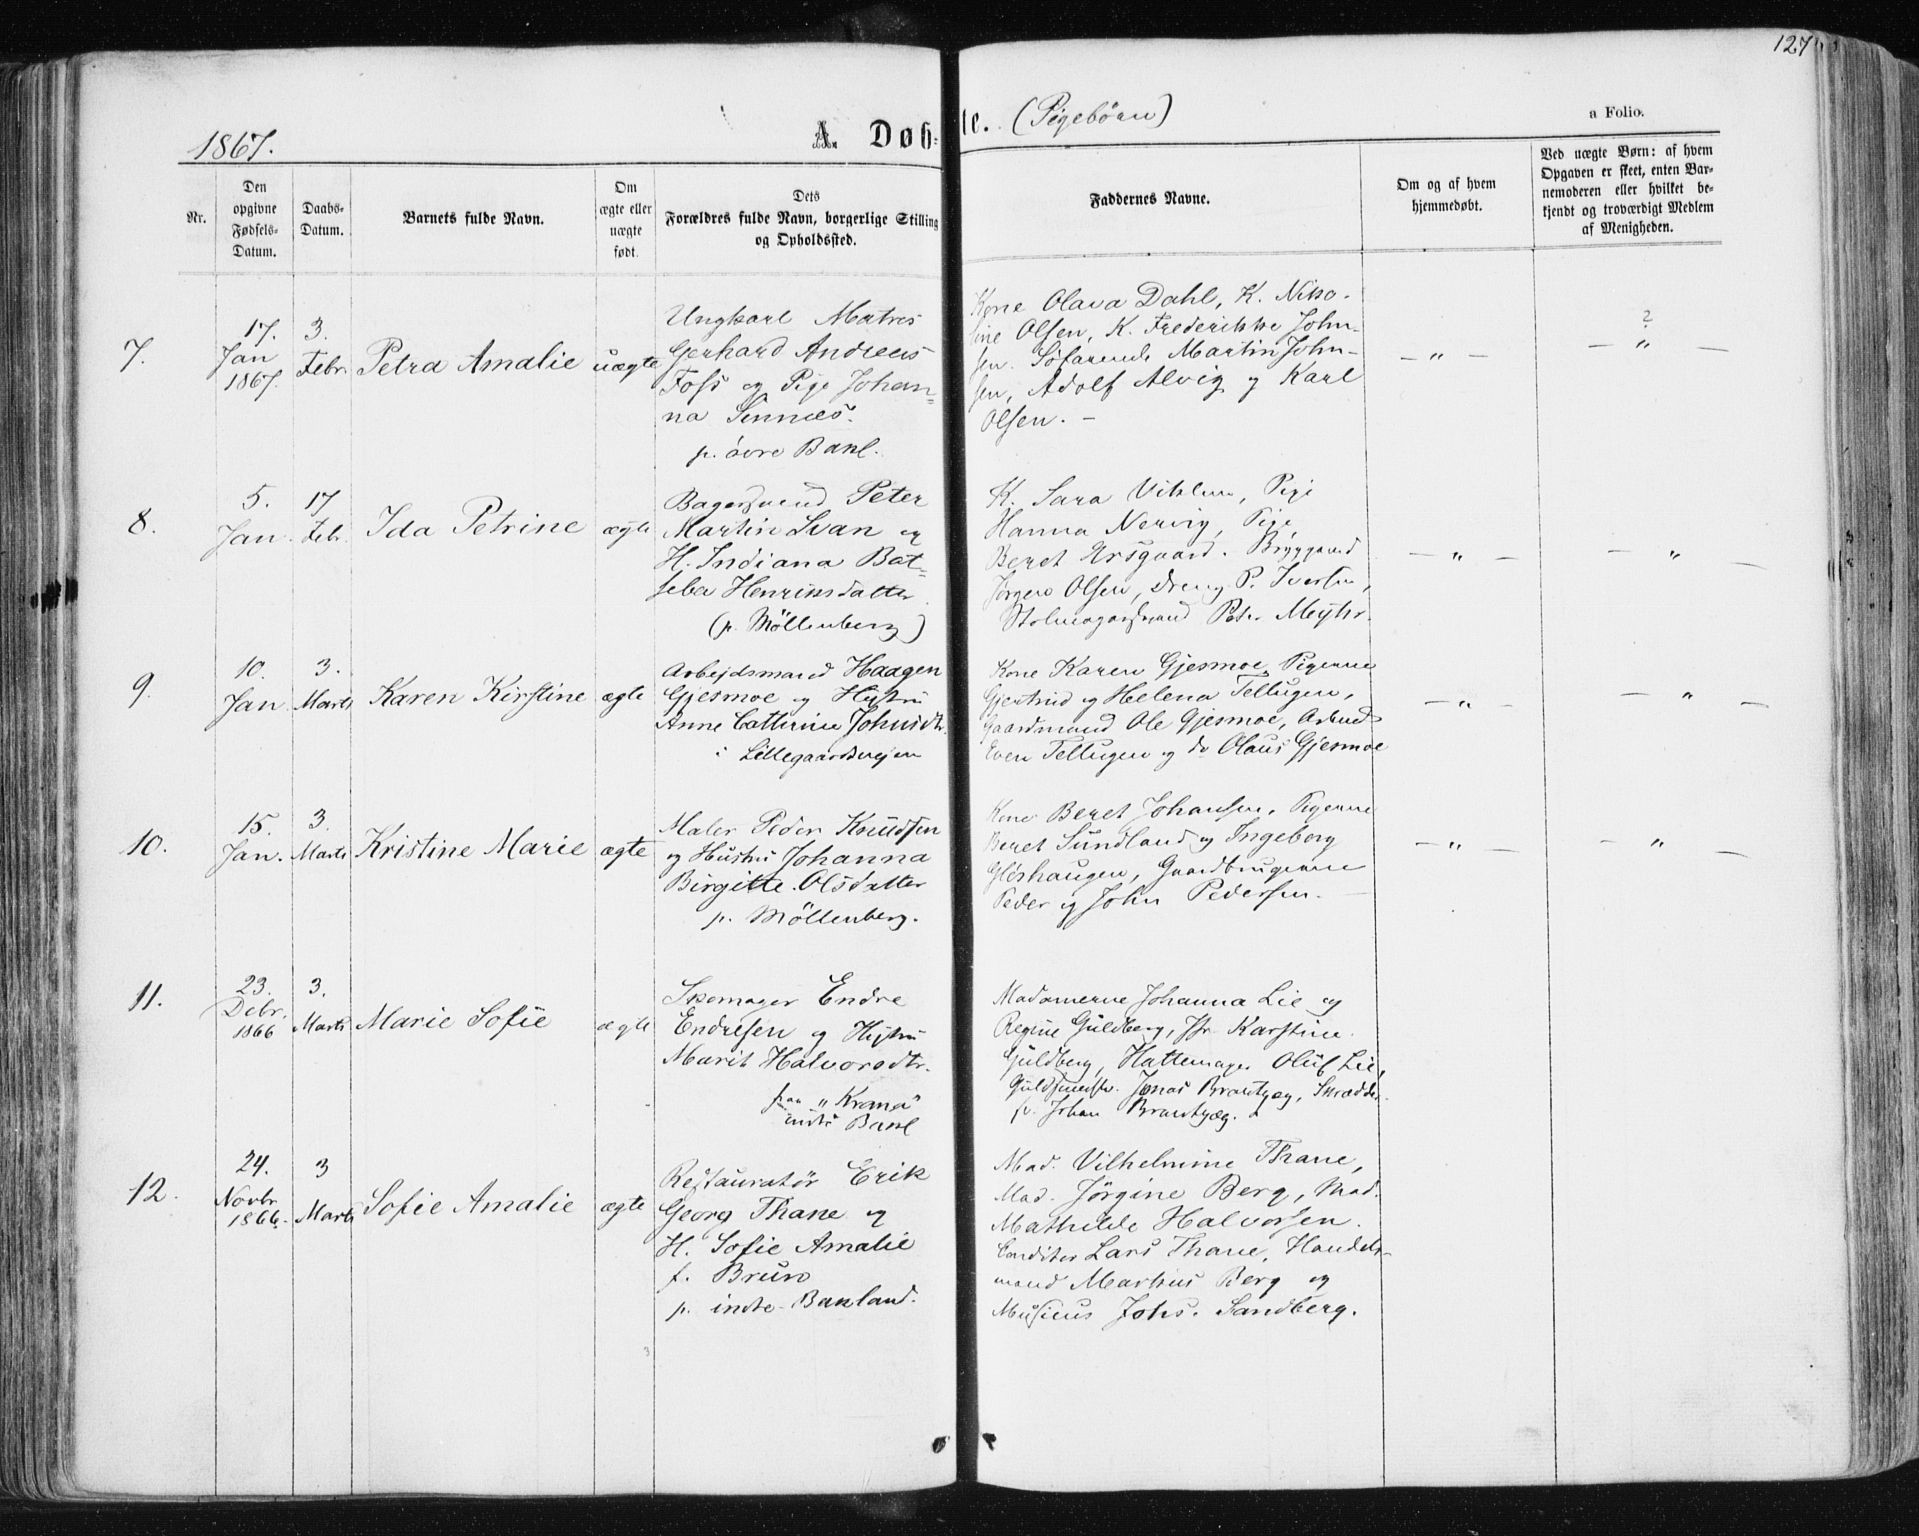 127
1867.
A Døb-
te. (Pigebørn)
a Folio.
Nr.
Den
opgivne
Fødsels-
Datum.
Daabs-
Datum.
Barnets fulde Navn.
Om
ægte eller
uægte
født.
Dets
Forældres fulde Navn, borgerlige Stilling
og Opholdssted.
Faddernes Navne.
Om og af hvem
hjemmedøbt.
Ved uægte Børn: af hvem
Opgaven er skeet, enten Bar-
nemoderen eller hvilket be-
kjendt og troværdigt Medlem
af Menigheden.
7.
17.
Jan
1867.
3.
Febr.
Petra Amalie
uægte
Ungkarl
Gerhard Andreas
Foss og Pige Johan-
na
p. övre Bakl.
Kone Olava Dahl, K. Niko-
line Olsen, K. Frederikke John-
sen. Søfarende Martin John-
sen, Adolf Alvig og Karl
Olsen. —
— „ —
?
— „ —
8.
5.
Jan.
17
Febr.
Ida Petrine
ægte
Bagersvend Peter
Martin Svan og
H. Indiana Bat-
seba Henriksdatter
(p. Möllenberg)
K. Sara Pige
Hanna Nervig, Pige
Beret
Jørgen Olsen, Dreng P. Iversen,
Stolmagersvend Peter
— „ —
— „ —
9.
10.
Jan.
3.
Marts
Karen Kirstine
ægte
Arbejdsmand Haagen
Gjesmoe og Hustru
Anne Cathrine Johnsdtr.
i Lillegaardsvejen
Kone Karen Gjesmoe, Pigerne
Gjertrud og Helena Tellugen,
Gaardmand Ole Gjesmoe, Arbmd
Even Tellugen og do Olaus Gjesmoe
— „ —
— „ —
10.
15.
Jan.
3.
Marts
Kristine Marie
ægte
Maler Peder Knudsen
og Hustru Johanna
Birgitte Olsdatter
p. Möllenberg.
Kone Beret Johansen, Pigerne
Beret Sundland og Ingeborg
Gløshaugen, Gaardbrugerne
Peder og John Pedersen. —
— „ —
— „ —
11.
23.
Debr.
1866
3.
Marts
Marie Sofie
ægte
Skomager Endre
Endresen og Hustru
Marit Halvorsdtr.
fra „Krana"
indre Bakl
Madamerne Johanna Lie og
Regine Guldberg, Jfr. Karstine
Guldberg, Hattemager Oluf Lie,
Guldsmedsv. Jonas Brautgæg, Skrædder-
sv. Johan Brautgæg.
12.
24.
Novbr
1866.
3
Marts
Sofie Amalie
ægte
Restauratør Erik
Georg Thane og
H. Sofie Amalie
f. Brun
p. indre Bakland.
Mad. Vilhelmine Thane,
Mad. Jörgine Berg, Mad.
Mathilde Halvorsen.
Conditor Lars Thane, Handels-
mand Martius Berg og
Musicus Johs. Sandberg.